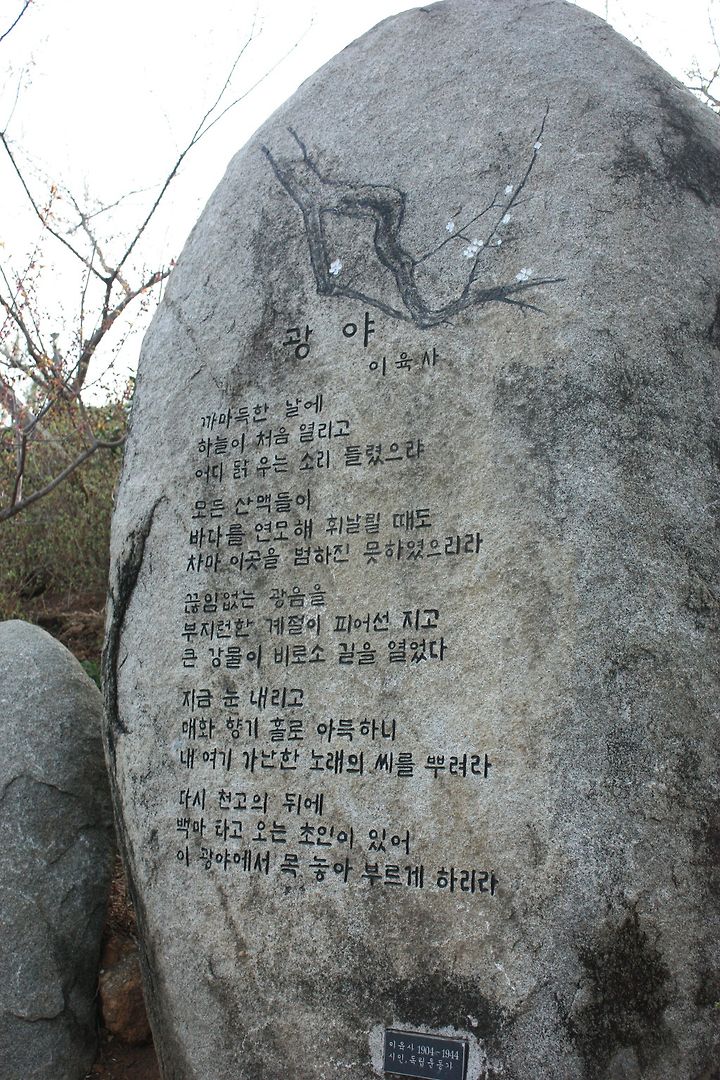 광야
이육사
까마득한 날에
하늘이 처음 열리고
어디 닭 우는 소리 들렸으랴
모든 산맥들이
바다를 연모해 휘날릴 때도
차마 이곳을 범하진 못하였으리라
끊임없는 광음을
부지런한 계절이 피어선 지고
큰 강물이 비로소 길을 열었다
지금 눈 내리고
매화 향기 홀로 아득하니
내 여기 가난한 노래의 씨를 뿌려라
다시 천고의 뒤에
백마 타고 오는 초인이 있어
이 광야에서 목 놓아 부르게 하리라
이육사 1904~1944
시인, 독립운동가